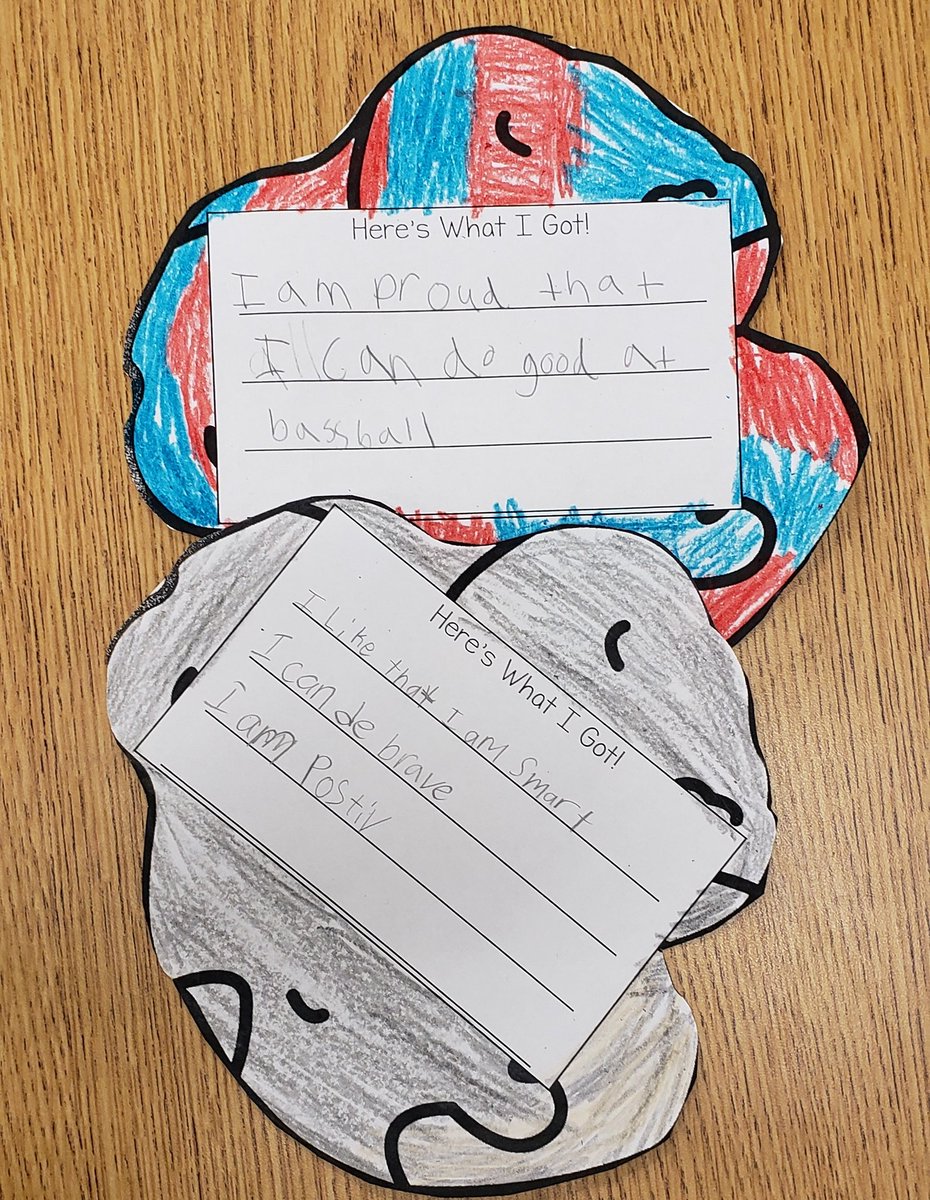 Here's What I Got!
I am proud that
I can do good at
bassball
Here's What I Got!
I Like that I am Smart
I can de brave
I am Postiv